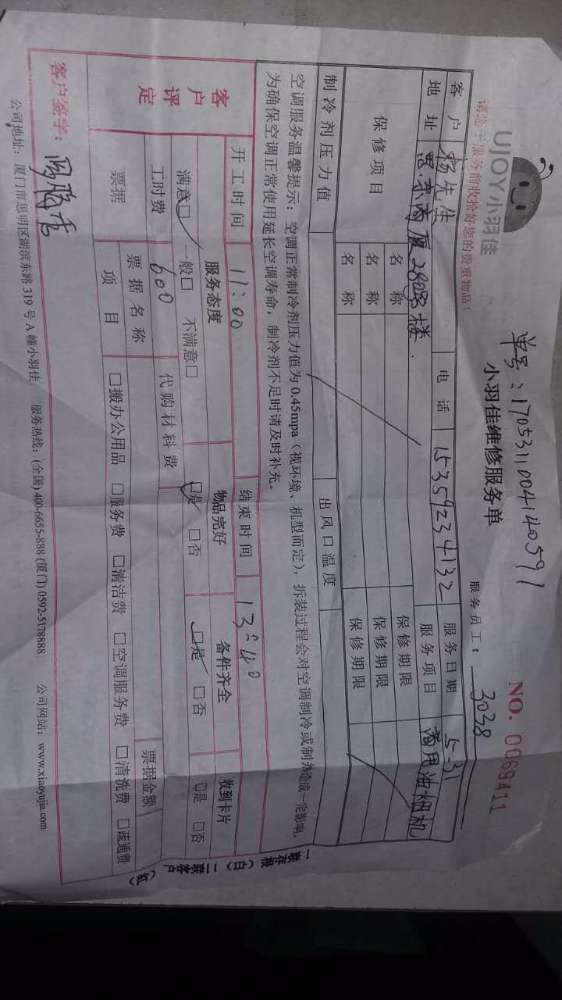 UJOY小羽佳
单号:170531100414059 1
小羽佳维修服务单
NO. 0069411
请您于服务前收拾好您的贵重物品!
服务员工: 3038
客户 杨先生 电话 15359234132 服务日期 5.31
地址 2808楼 服务项目 商用油烟机
保修项目 名称 保修期限
名称 保修期限
名称 保修期限
制冷剂压力值 出风口温度
空调服务温馨提示:空调正常制冷剂压力值为0.45mpa(视环境、机型而定),拆装过程会对空调制冷或制热造成一定影响,
为确保空调正常使用延长空调寿命,制冷剂不足时请及时补充。
客户评定 开工时间 11:00 结束时间 13:40
服务态度 物品完好 备件齐全 收到卡片
满意□ 一般□ 不满意□ □是 □否 □是 □否 □是 □否
工时费 600 代购材料费
票据 票据名称 票据金额
项目 □搬办公用品 □服务费 □清洁费 □空调服务费 □清洗费 □速通费
客户签字:
公司地址:厦门市思明区湖滨东路319号A幢小羽佳 服务热线:(全国)400-6655-888 (厦门) 0592-5178888 公司网站:www.xiaoyujia.com
一联存根(白) 二联客户(红)